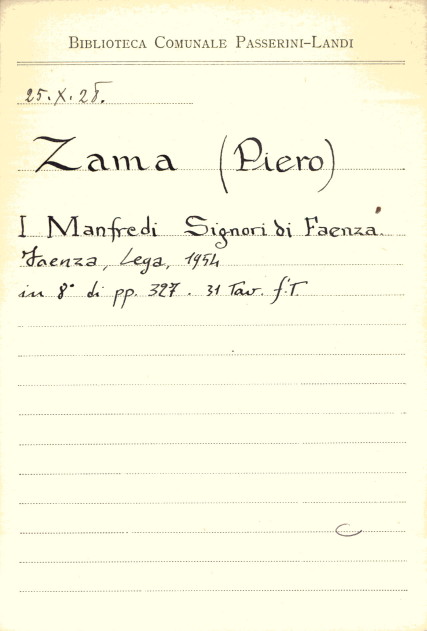 BIBLIOTECA COMUNALE PASSERINI-LANDI
25.X.28.
Zama (Piero)
I Manfredi Signori di Faenza.
Faenza, Lega, 1954
in 8° di pp. 327. 31 Tav. f.T.